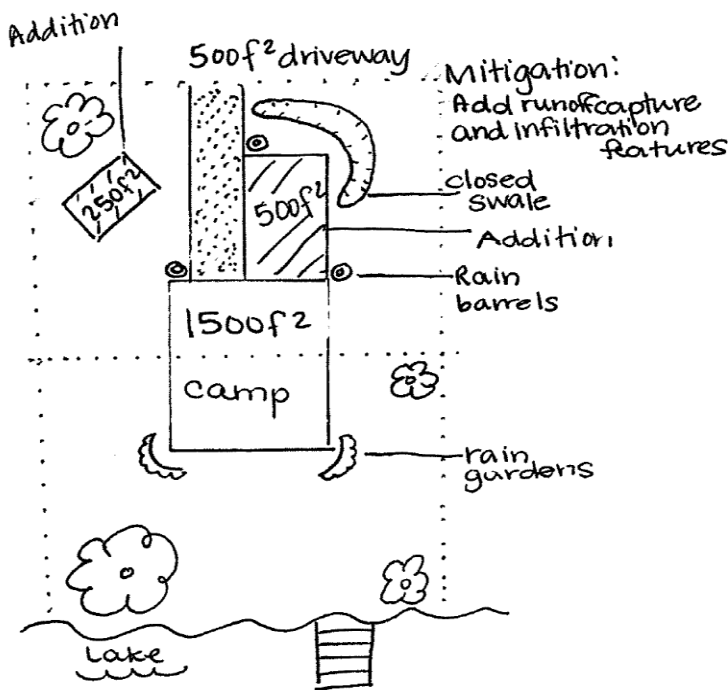 Addition
500f² driveway
Mitigation:
Add runoff capture
and infiltration
features
250f²
500f²
closed
swale
Addition,
Rain
barrels
1500f²
camp
rain
gurdens
Lake